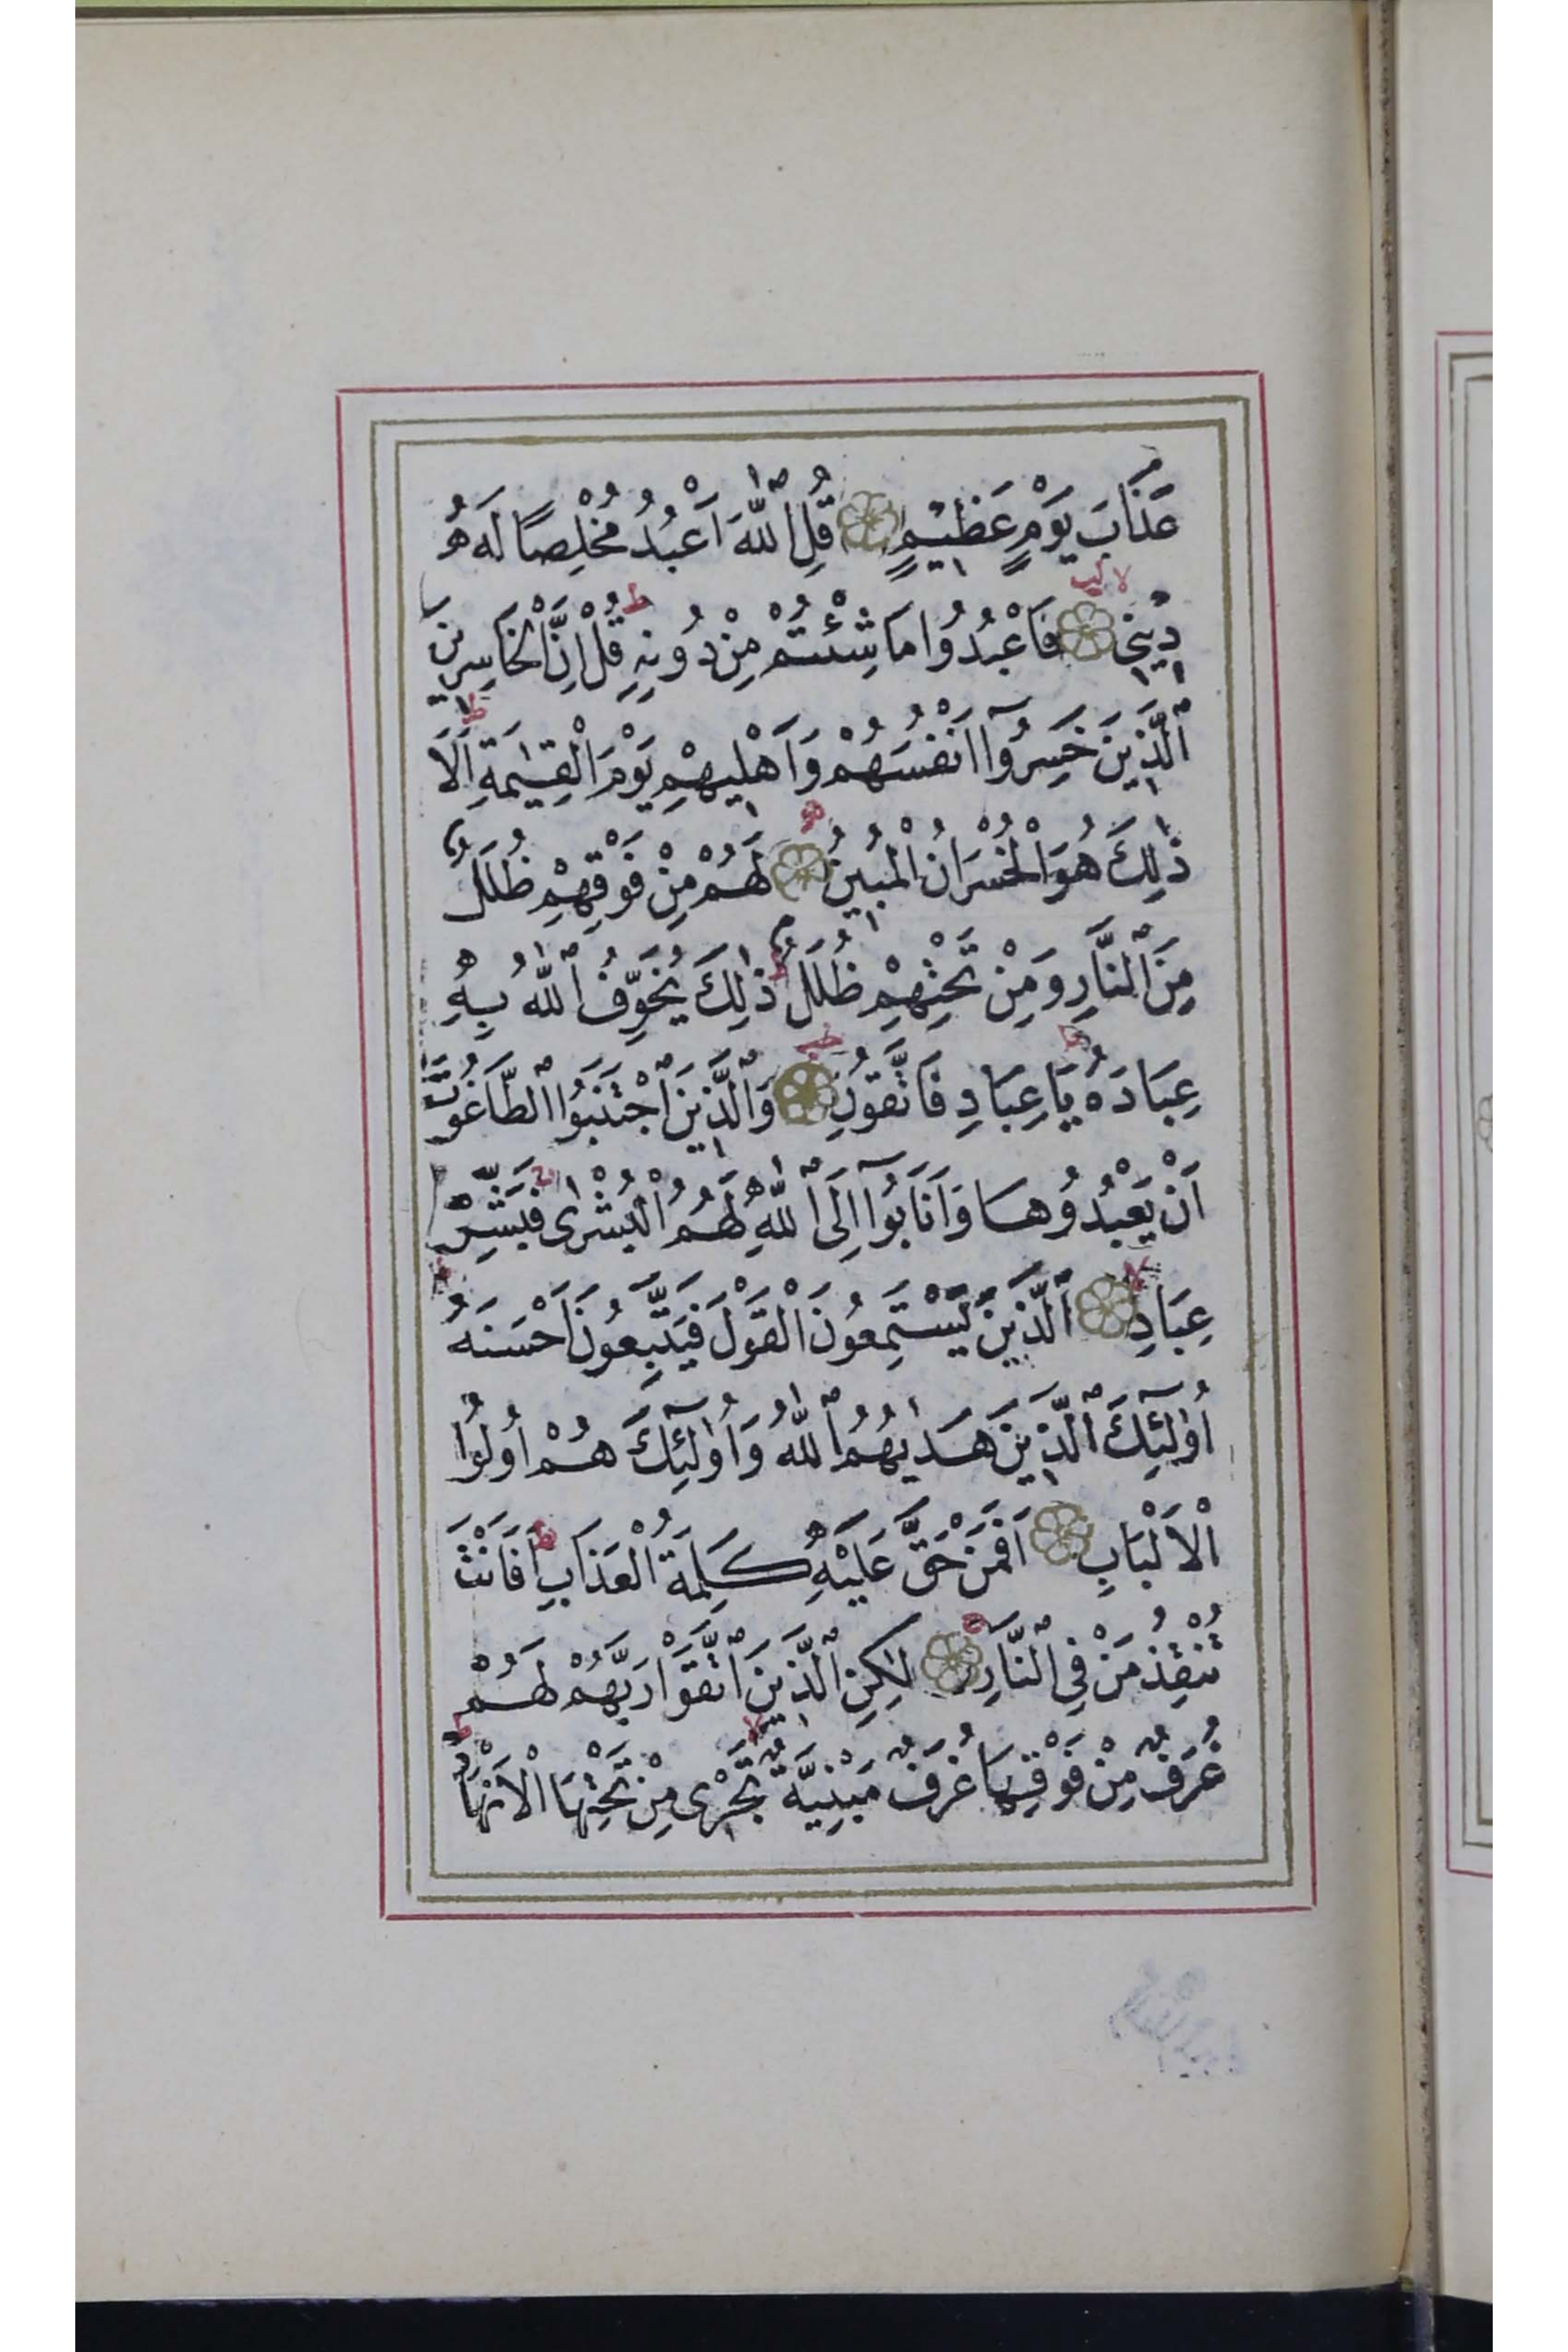 عَذَابَ يَوْمٍ عَظِيمٍ قُلِ اللّٰهَ اَعْبُدُ مُخْلِصًا لَهُ
دِينِي فَاعْبُدُوا مَا شِئْتُمْ مِنْ دُونِهِ قُلْ اِنَّ الْخَاسِرِينَ
اَلَّذِينَ خَسِرُوٓا اَنْفُسَهُمْ وَاَهْلِيهِمْ يَوْمَ الْقِيٰمَةِ اَلَا
ذٰلِكَ هُوَ الْخُسْرَانُ الْمُبِينُ لَهُمْ مِنْ فَوْقِهِمْ ظُلَلٌ
مِنَ النَّارِ وَمِنْ تَحْتِهِمْ ظُلَلٌ ذٰلِكَ يُخَوِّفُ اللّٰهُ بِهِ
عِبَادَهُ يَا عِبَادِ فَاتَّقُونِ وَالَّذِينَ اجْتَنَبُوا الطَّاغُوتَ
اَنْ يَعْبُدُوهَا وَاَنَابُوٓا اِلَى اللّٰهِ لَهُمُ الْبُشْرٰى فَبَشِّرْ
عِبَادِ اَلَّذِينَ يَسْتَمِعُونَ الْقَوْلَ فَيَتَّبِعُونَ اَحْسَنَهُ
اُولٰٓئِكَ الَّذِينَ هَدٰيهُمُ اللّٰهُ وَاُولٰٓئِكَ هُمْ اُولُوا
الْاَلْبَابِ اَفَمَنْ حَقَّ عَلَيْهِ كَلِمَةُ الْعَذَابِ اَفَاَنْتَ
تُنْقِذُ مَنْ فِي النَّارِ لٰكِنِ الَّذِينَ اتَّقَوْا رَبَّهُمْ لَهُمْ
غُرَفٌ مِنْ فَوْقِهَا غُرَفٌ مَبْنِيَّةٌ تَجْرِي مِنْ تَحْتِهَا الْاَنْهَارُ